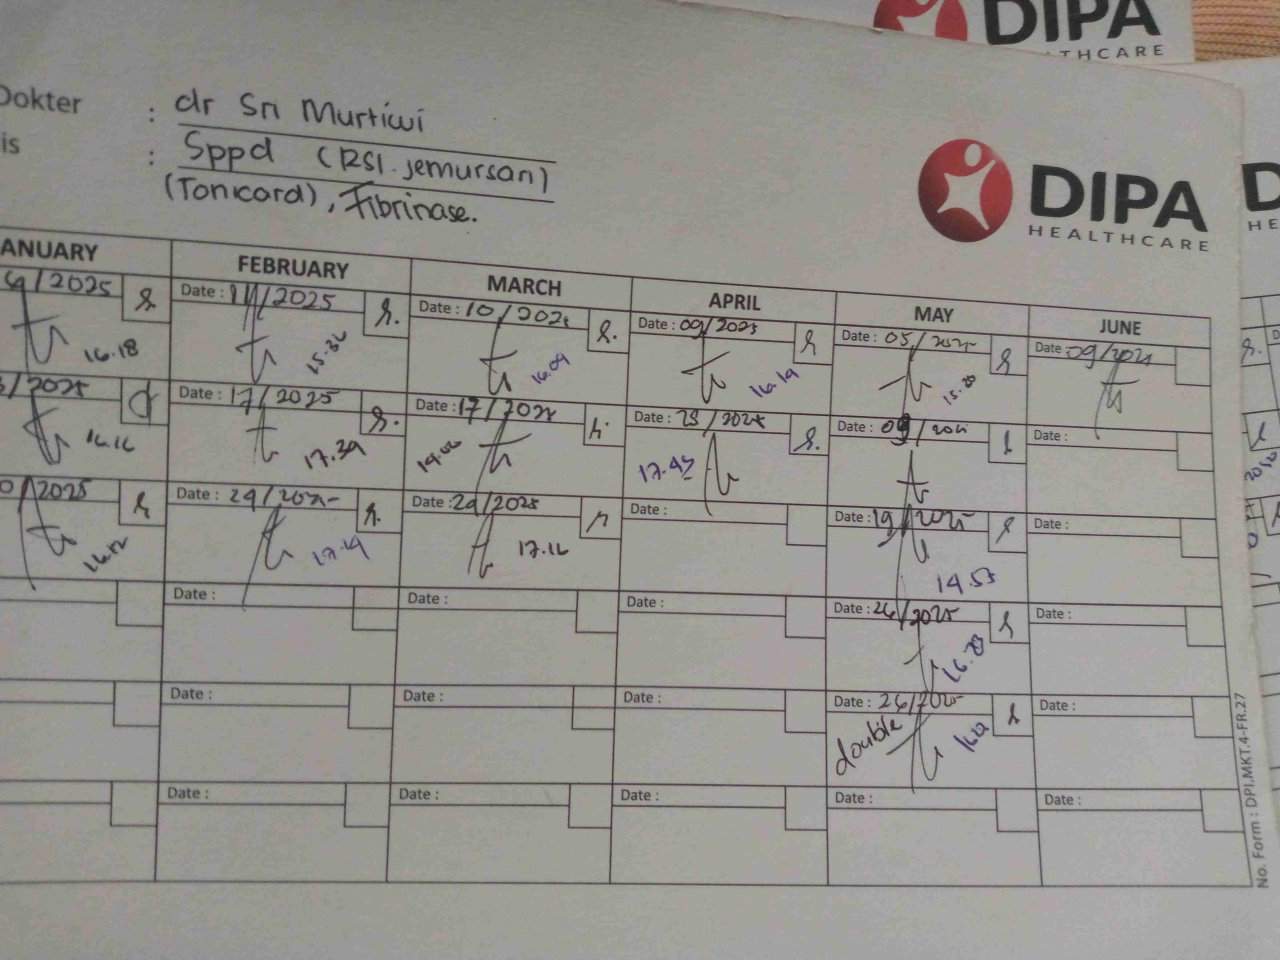 DIPA
THCARE
Dokter : dr Sri Murtiwi
is : Sppd (RSI.jemursari)
(Tonicard), Fibrinase.
DIPA
HEALTHCARE
D
HE
ANUARY FEBRUARY MARCH APRIL MAY JUNE
/2025 Date : 11/2025 Date : 10/2025 Date : 09/2025 Date : 05/2025 Date : 09/2025
16.18 15.36 16.09 16.19
/2025 Date : 17/2025 Date : 17/2025 Date : 23/2025 Date : 09/2025 Date :
16.16 17.39 17.45
/2025 Date : 24/2025 Date : 24/2025 Date : Date : 19/2025 Date :
16.12 17.19 17.16 14.53
Date : Date : Date : Date : 26/2025 Date :
Date : Date : Date : Date : 26/2025 Date :
double
Date : Date : Date : Date : Date :
No. Form : DPI.MKT.4-FR.27